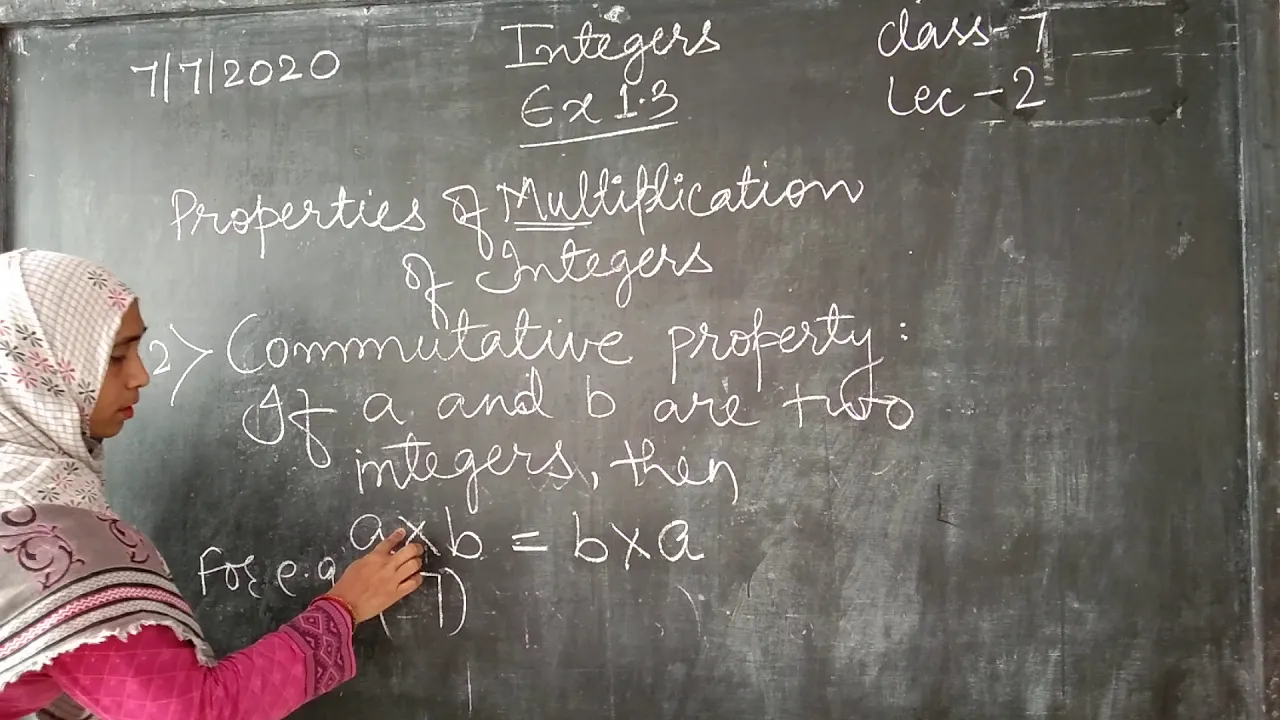 7/7/2020
Integers
Ex 1.3
Class-7
Lec-2
Properties of Multiplication
of Integers
2> Commutative property:
If a and b are two
integers, then
a×b = b×a
for e.g
(-7)